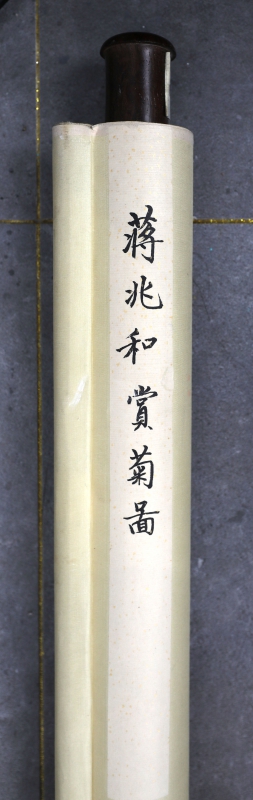 蔣兆和賞菊啚